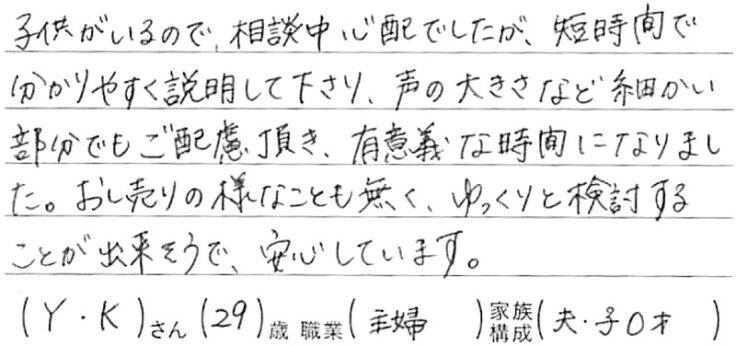 子供がいるので、相談中心配でしたが、短時間で
分かりやすく説明して下さり、声の大きさなど細かい
部分でもご配慮頂き、有意義な時間になりまし
た。おし売りの様なことも無く、ゆっくりと検討する
ことが出来そうで、安心しています。
(Y・K)さん(29)歳 職業(主婦)家族構成(夫・子0才)